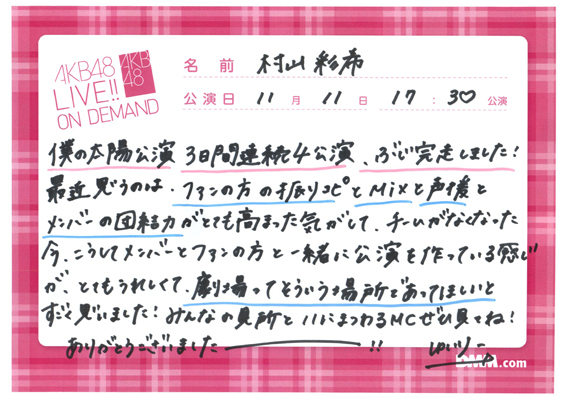 AKB48
LIVE!!
ON DEMAND
AKB
48
名前 村山彩希
公演日 11月11日 17:30 公演
僕の太陽公演 3日間連続4公演、ぶじ完走しました!
最近思うのは、ファンの方の振りコピとMixと声援と
メンバーの団結力がとても高まった気がして、チームがなくなった
今、こうしてメンバーとファンの方と一緒に公演を作っている感じ
が、とてもうれしくて、劇場ってそういう場所であってほしいと
すごく思いました!みんなの見所と11にまつわるMCぜひ見てね!
ありがとうございましたー!!
ゆいりー
DMM.com